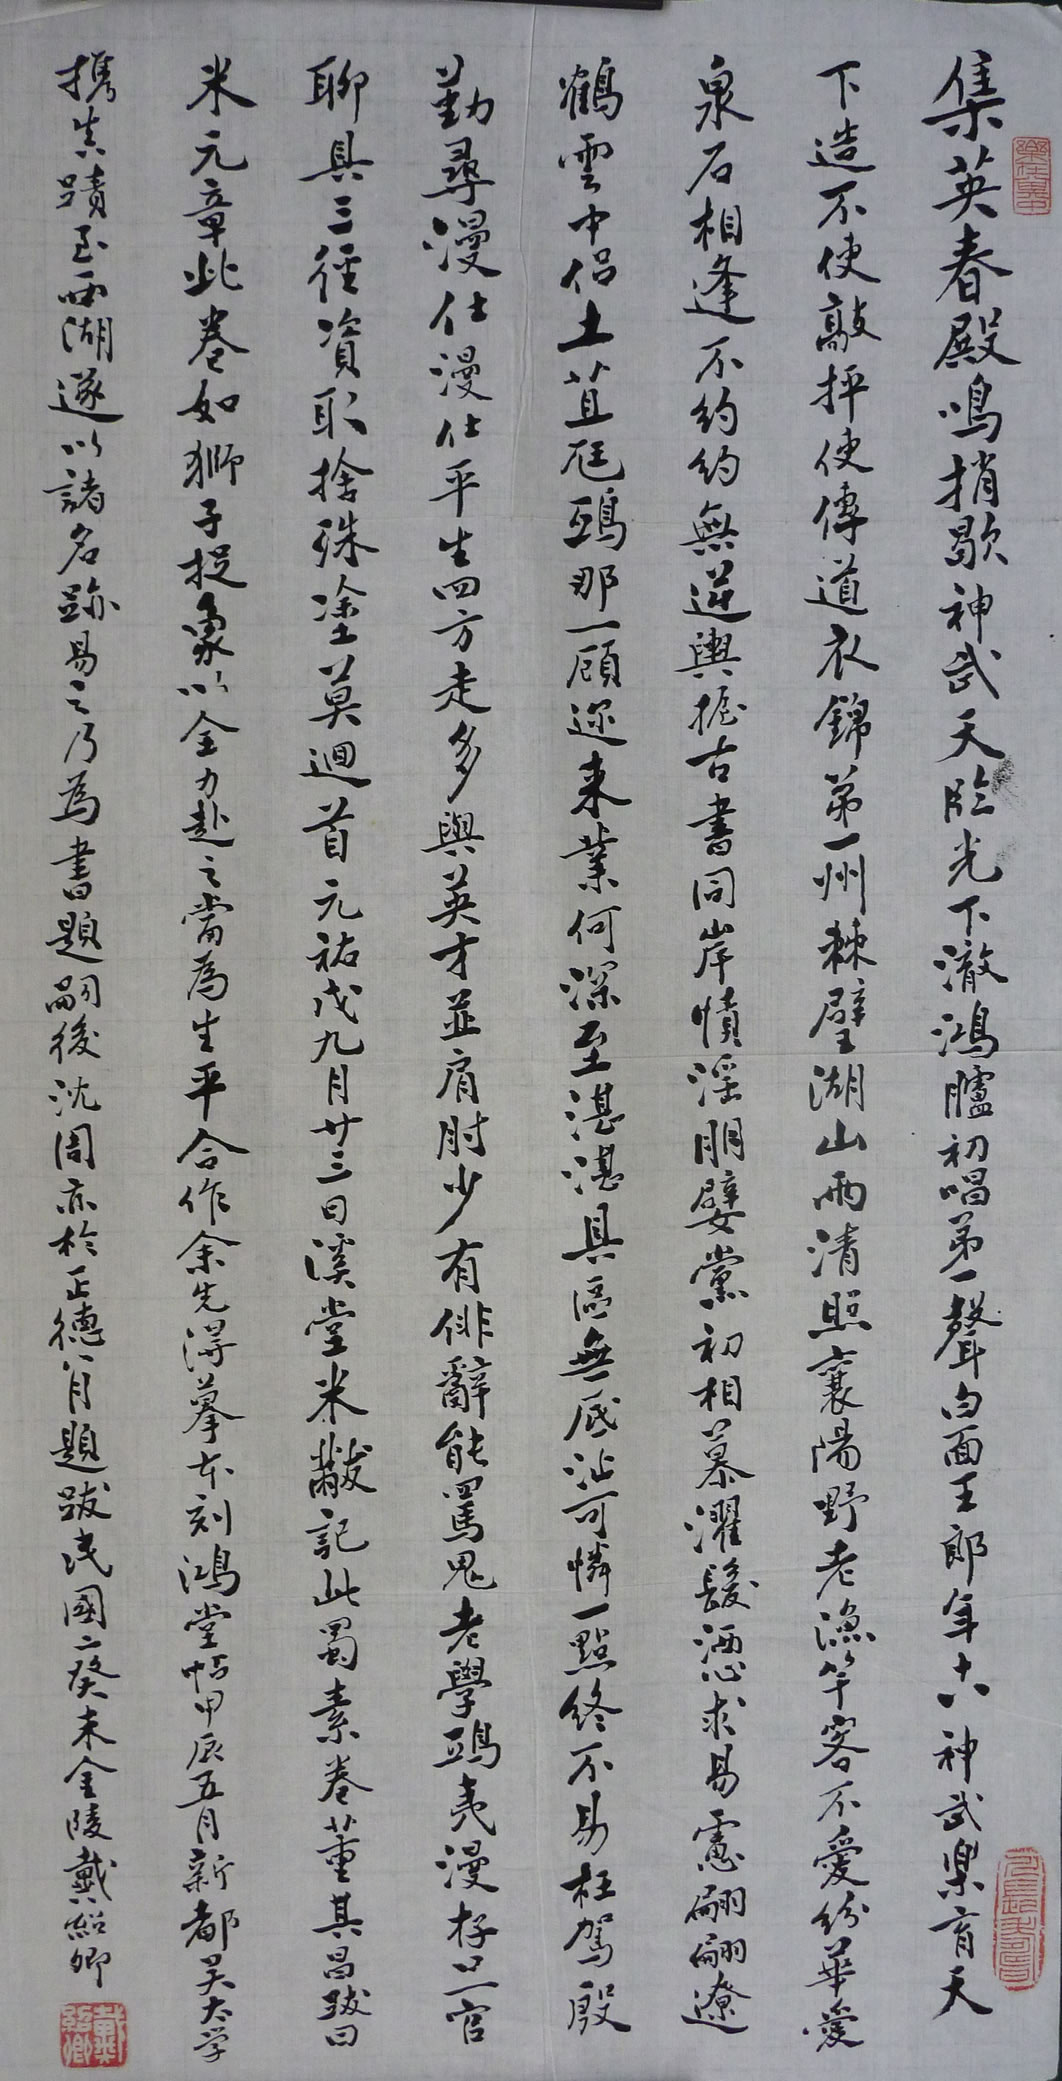 集英春殿鳴捎歇神武天臨光下澈鴻臚初唱第一聲白面王郎年十八神武樂育天
下造不使敲抨使傳道衣錦第一州棘璧湖山兩清照襄陽野老漁竿客不愛紛華愛
泉石相逢不約約無逆輿握古書同岸幘淫朋嬖黨初相慕濯髮洒心求易慮翩翩遼
鶴雲中侶土苴尫鴟那一顧邇来業何深至湛湛具區無底沚可憐一點終不易枉駕殷
勤尋漫仕漫仕平生四方走多與英才並肩肘少有俳辭能罵鬼老學鴟夷漫存口一官
聊具三徑資取捨殊塗莫迴首元祐戊九月廿三日溪堂米黻記此蜀素卷董其昌跋曰
米元章此卷如獅子捉象以全力赴之當為生平合作余先得摹本刻鴻堂帖甲辰五月新都吴太学
携真蹟至西湖遂以諸名跡易之乃為書題嗣後沈周亦於正德八月題跋民國二癸未金陵戴紹卿
戴紹卿